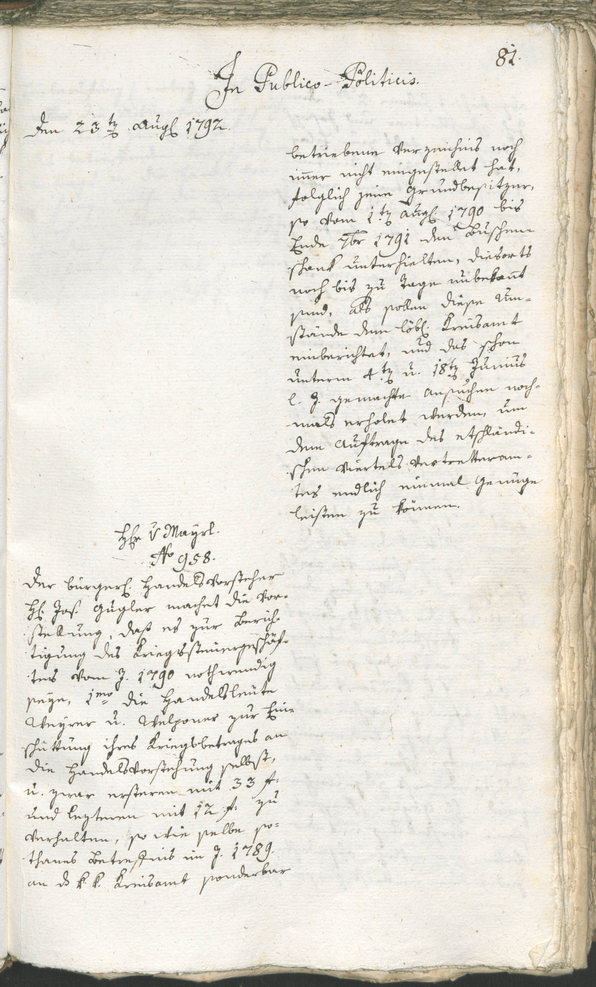 81.
In Publico-Politicis.
Den 23tg Augl 1792.
betriebene Verzeichnis noch
imer nicht eingestellt hat,
folglich jene Grundbesitzer,
so vom 1tg Augl 1790 bis
Ende 7br 1791 den Buschen-
schank unterhielten, diesorts
noch bis zu Tage unbekannt
sind, als sollen diese Um-
stände dem löbl. Kreisamt
einberichtet, und das schon
unterm 4tg u. 18tg Junius
l. J. gemachte Ansuchen noch-
mals erholet werden, um
dem Auftrage des etschländi-
schen Viertels Vertretteram-
tes endlich einmal Genüge
leisten zu können.
Hr v Mayrl.
No 958.
Der bürgerl Handelsvorsteher
H. Jos. Gugler machet die Vor-
stellung, daß es zur Berich-
tigung des Kriegssteuergeschäf-
tes vom J. 1790 nothwendig
seye, 1mo die Handelsleute
Weyrer u. Welponer zur Ein-
schüttung ihres Kriegsbetrages an
die Handelsvorstehung selbst,
u. zwar ersteren mit 33 f.
und lezteren mit 12 f. zu
verhalten, so wie selbe so-
thanes Betrefnis im J. 1789
an d k. k. Kreisamt sonderbar